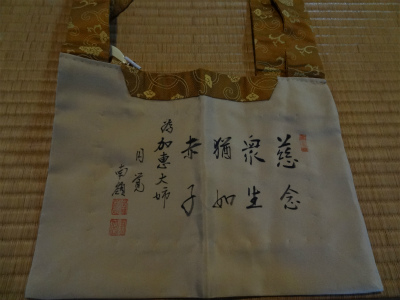 慈念
衆生
猶如
赤子
為加恵大姉
円覚
南嶺